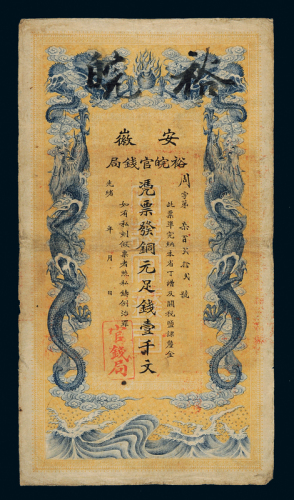 裕皖
安徽
裕皖官錢局
周字第柒百弍拾弍號
此票準完納本省丁漕及關稅鹽課釐金
憑票發銅元足錢壹千文
如有私刻假票者照私鑄例治罪
光緒年月日
官錢局